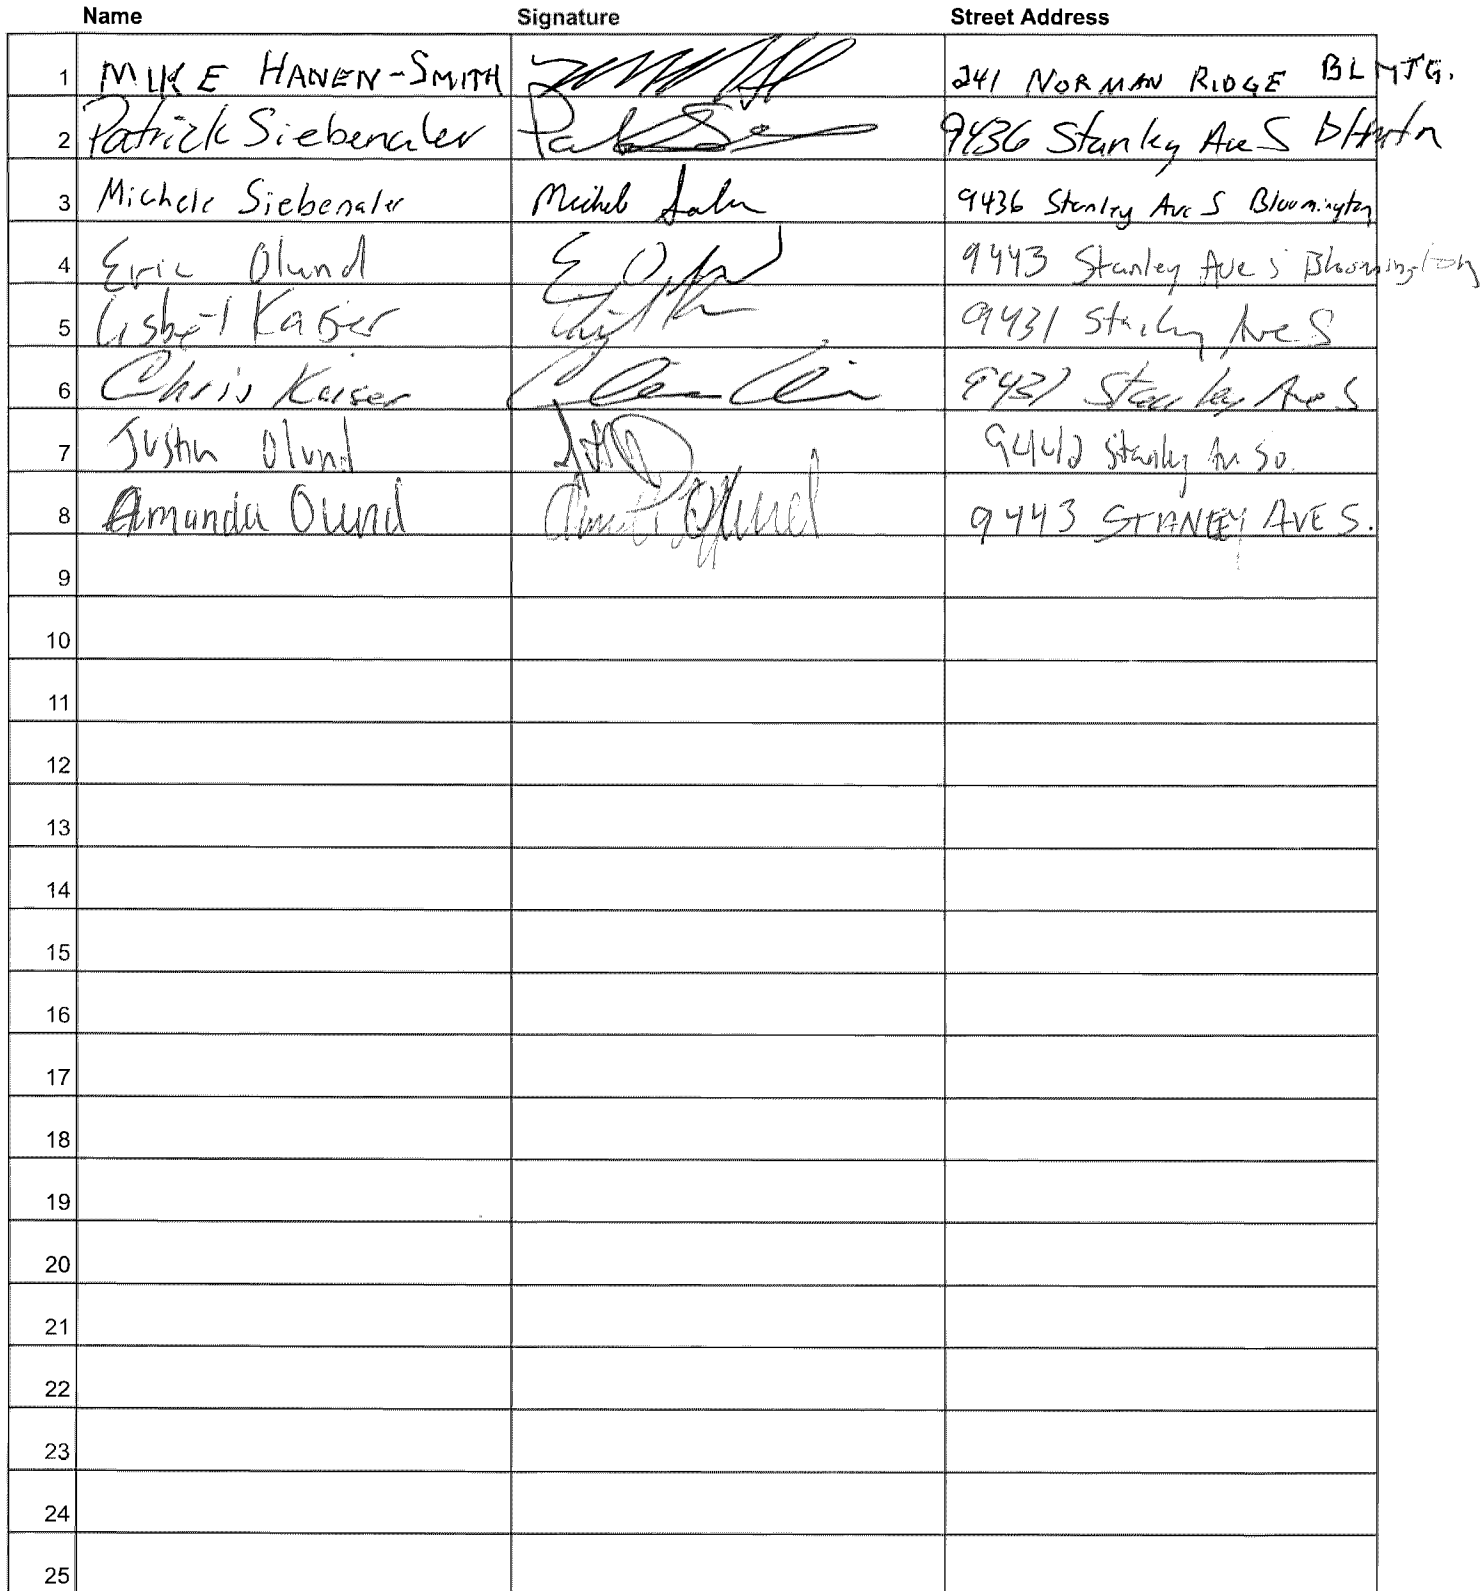 Name Signature Street Address
1 MIKE HANEN-SMITH 241 NORMAN RIDGE BLMTG.
2 Patrick Siebenaler 9436 Stanley Ave S
3 Michele Siebenaler Michele 9436 Stanley Ave S Bloomington
4 Eric Olund E Olund 9443 Stanley Ave S Bloomington
5 Lisbet Kaiser 9431 Stanley Ave S
6 Chris Kaiser 9431 Stanley Ave S
7 Justin Olund Stanley Av. So.
8 Amanda Olund Olund 9443 STANLEY AVE S.
9
10
11
12
13
14
15
16
17
18
19
20
21
22
23
24
25